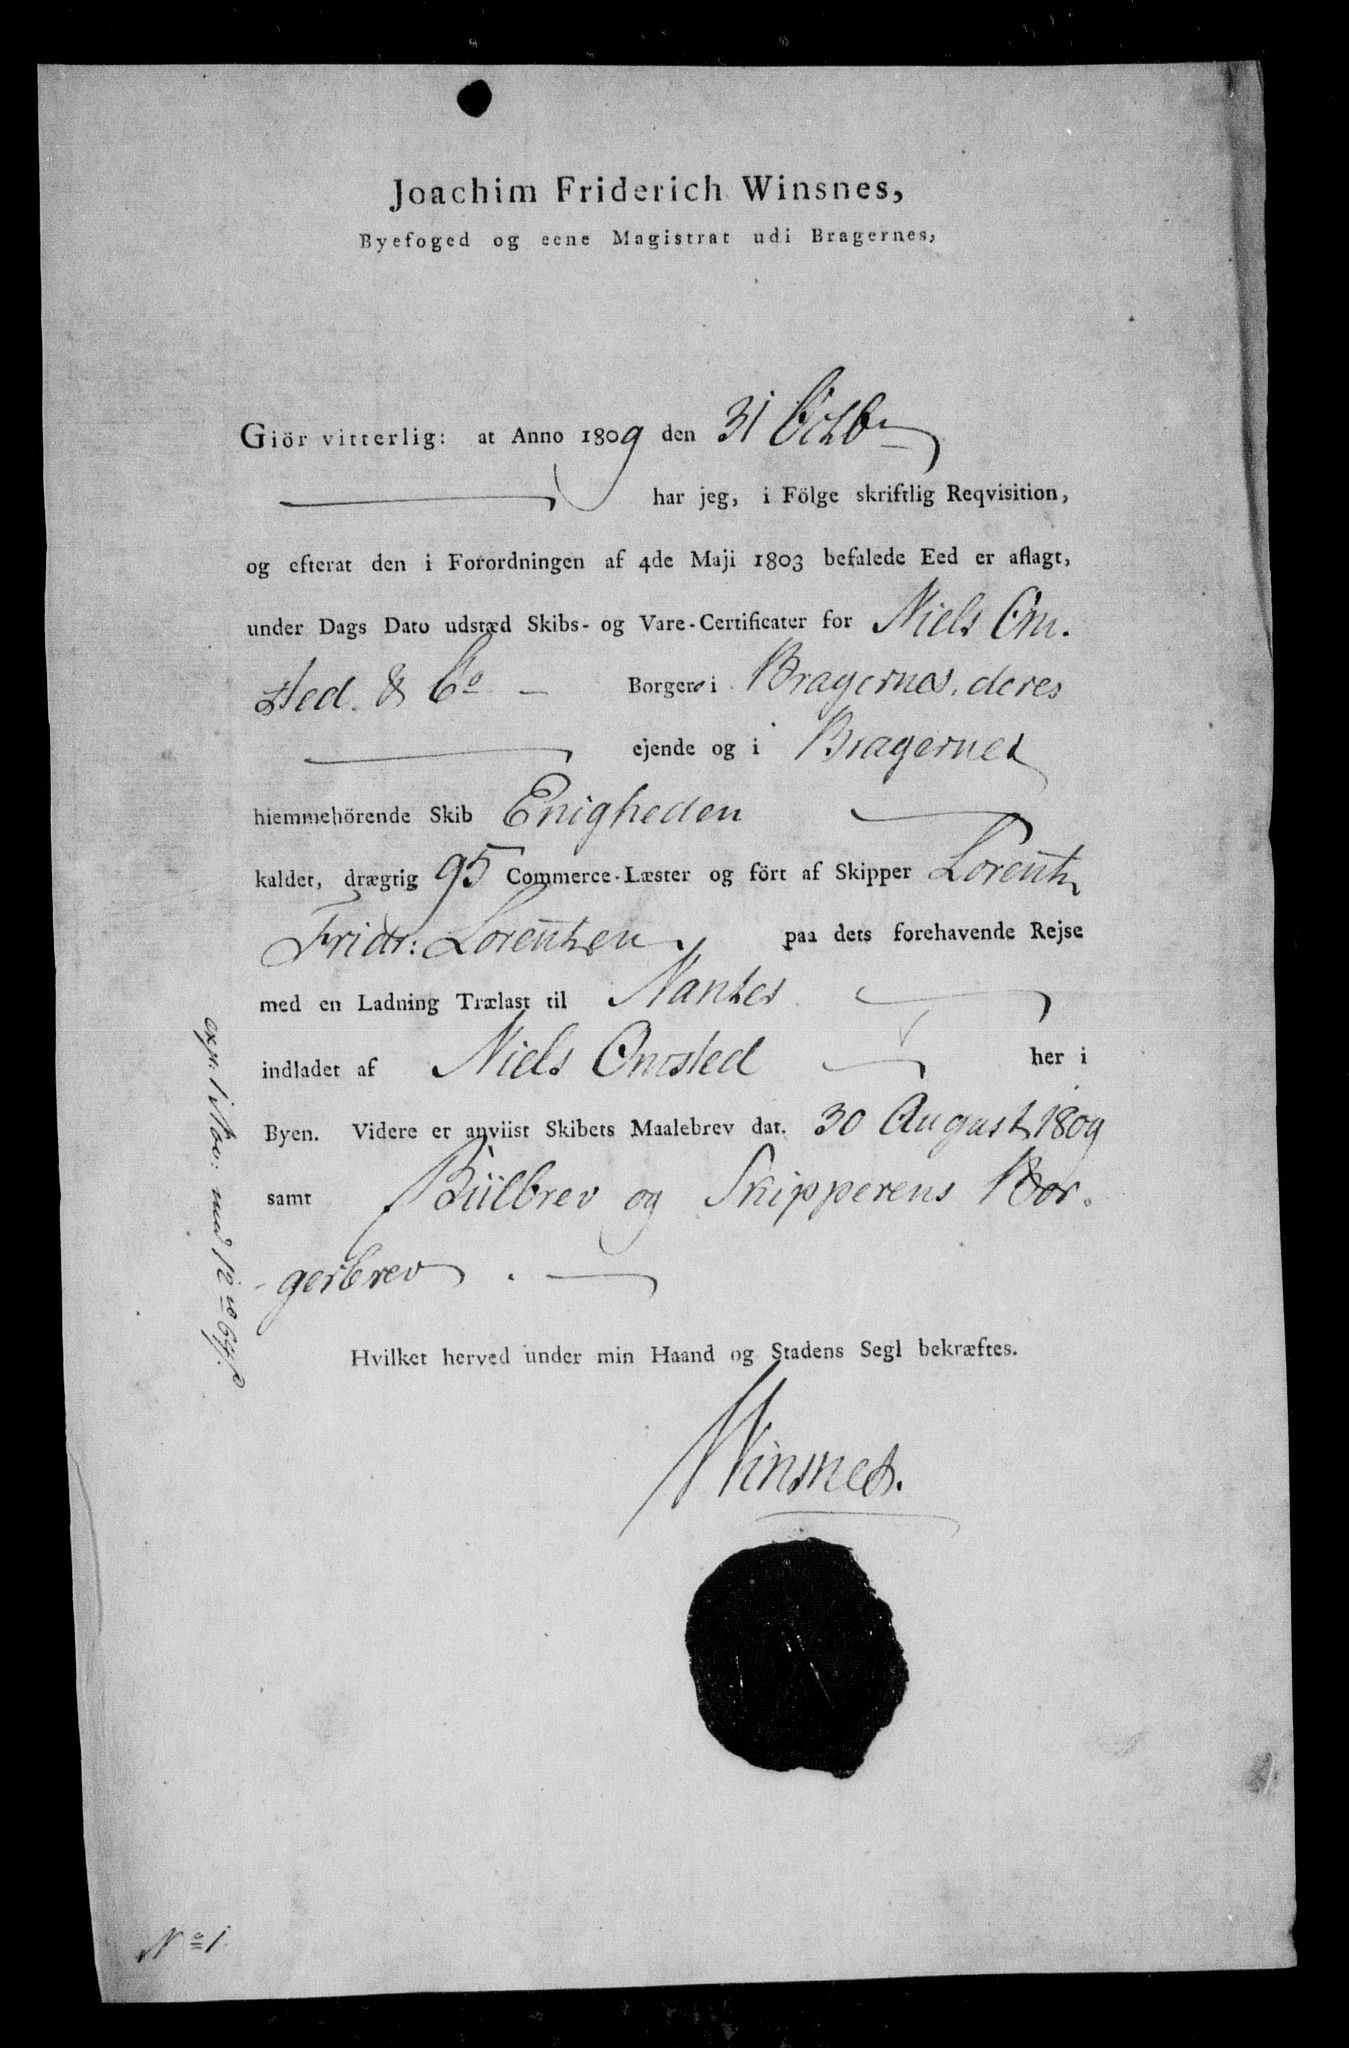 Joachim Friderich Winsnes,
Byefoged og eene Magistrat udi Bragernes,
Giör vitterlig: at Anno 1809 den 31 Octbr
har jeg, i Fölge skriftlig Reqvisition,
og efterat den i Forordningen af 4de Maji 1803 befalede Eed er aflagt,
under Dags Dato udstæd Skibs- og Vare-Certificater for Niels Om-
sted & Co - Borgere i Bragernes, deres
ejende og i Bragernes
hiemmehörende Skib Enigheden
kaldet, drægtig 95 Commerce-Læster og fört af Skipper Lorentz
Fridr: Lorentzen paa dets forehavende Rejse
med en Ladning Trælast til Nantes
indladet af Niels Omsted her i
Byen. Videre er anviist Skibets Maalebrev dat. 30 August 1809
samt Biilbrev og Skipperens Bor-
gerbrev.
Hvilket herved under min Haand og Stadens Segl bekræftes.
Winsnes.
exp. 1 Nov: med 12
No 1.